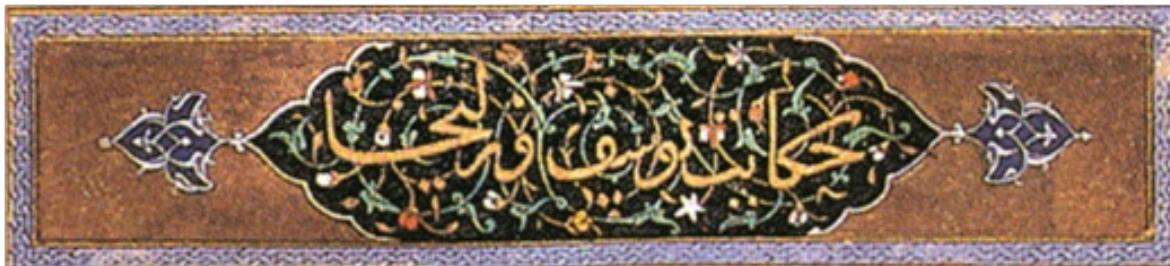 حکایت یوسف و زلیخا